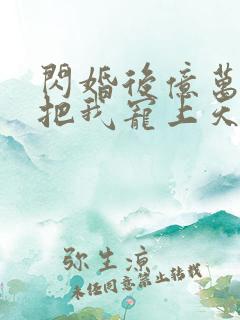 閃婚後億萬
把我寵上天
弥生凉
未经同意禁止转载